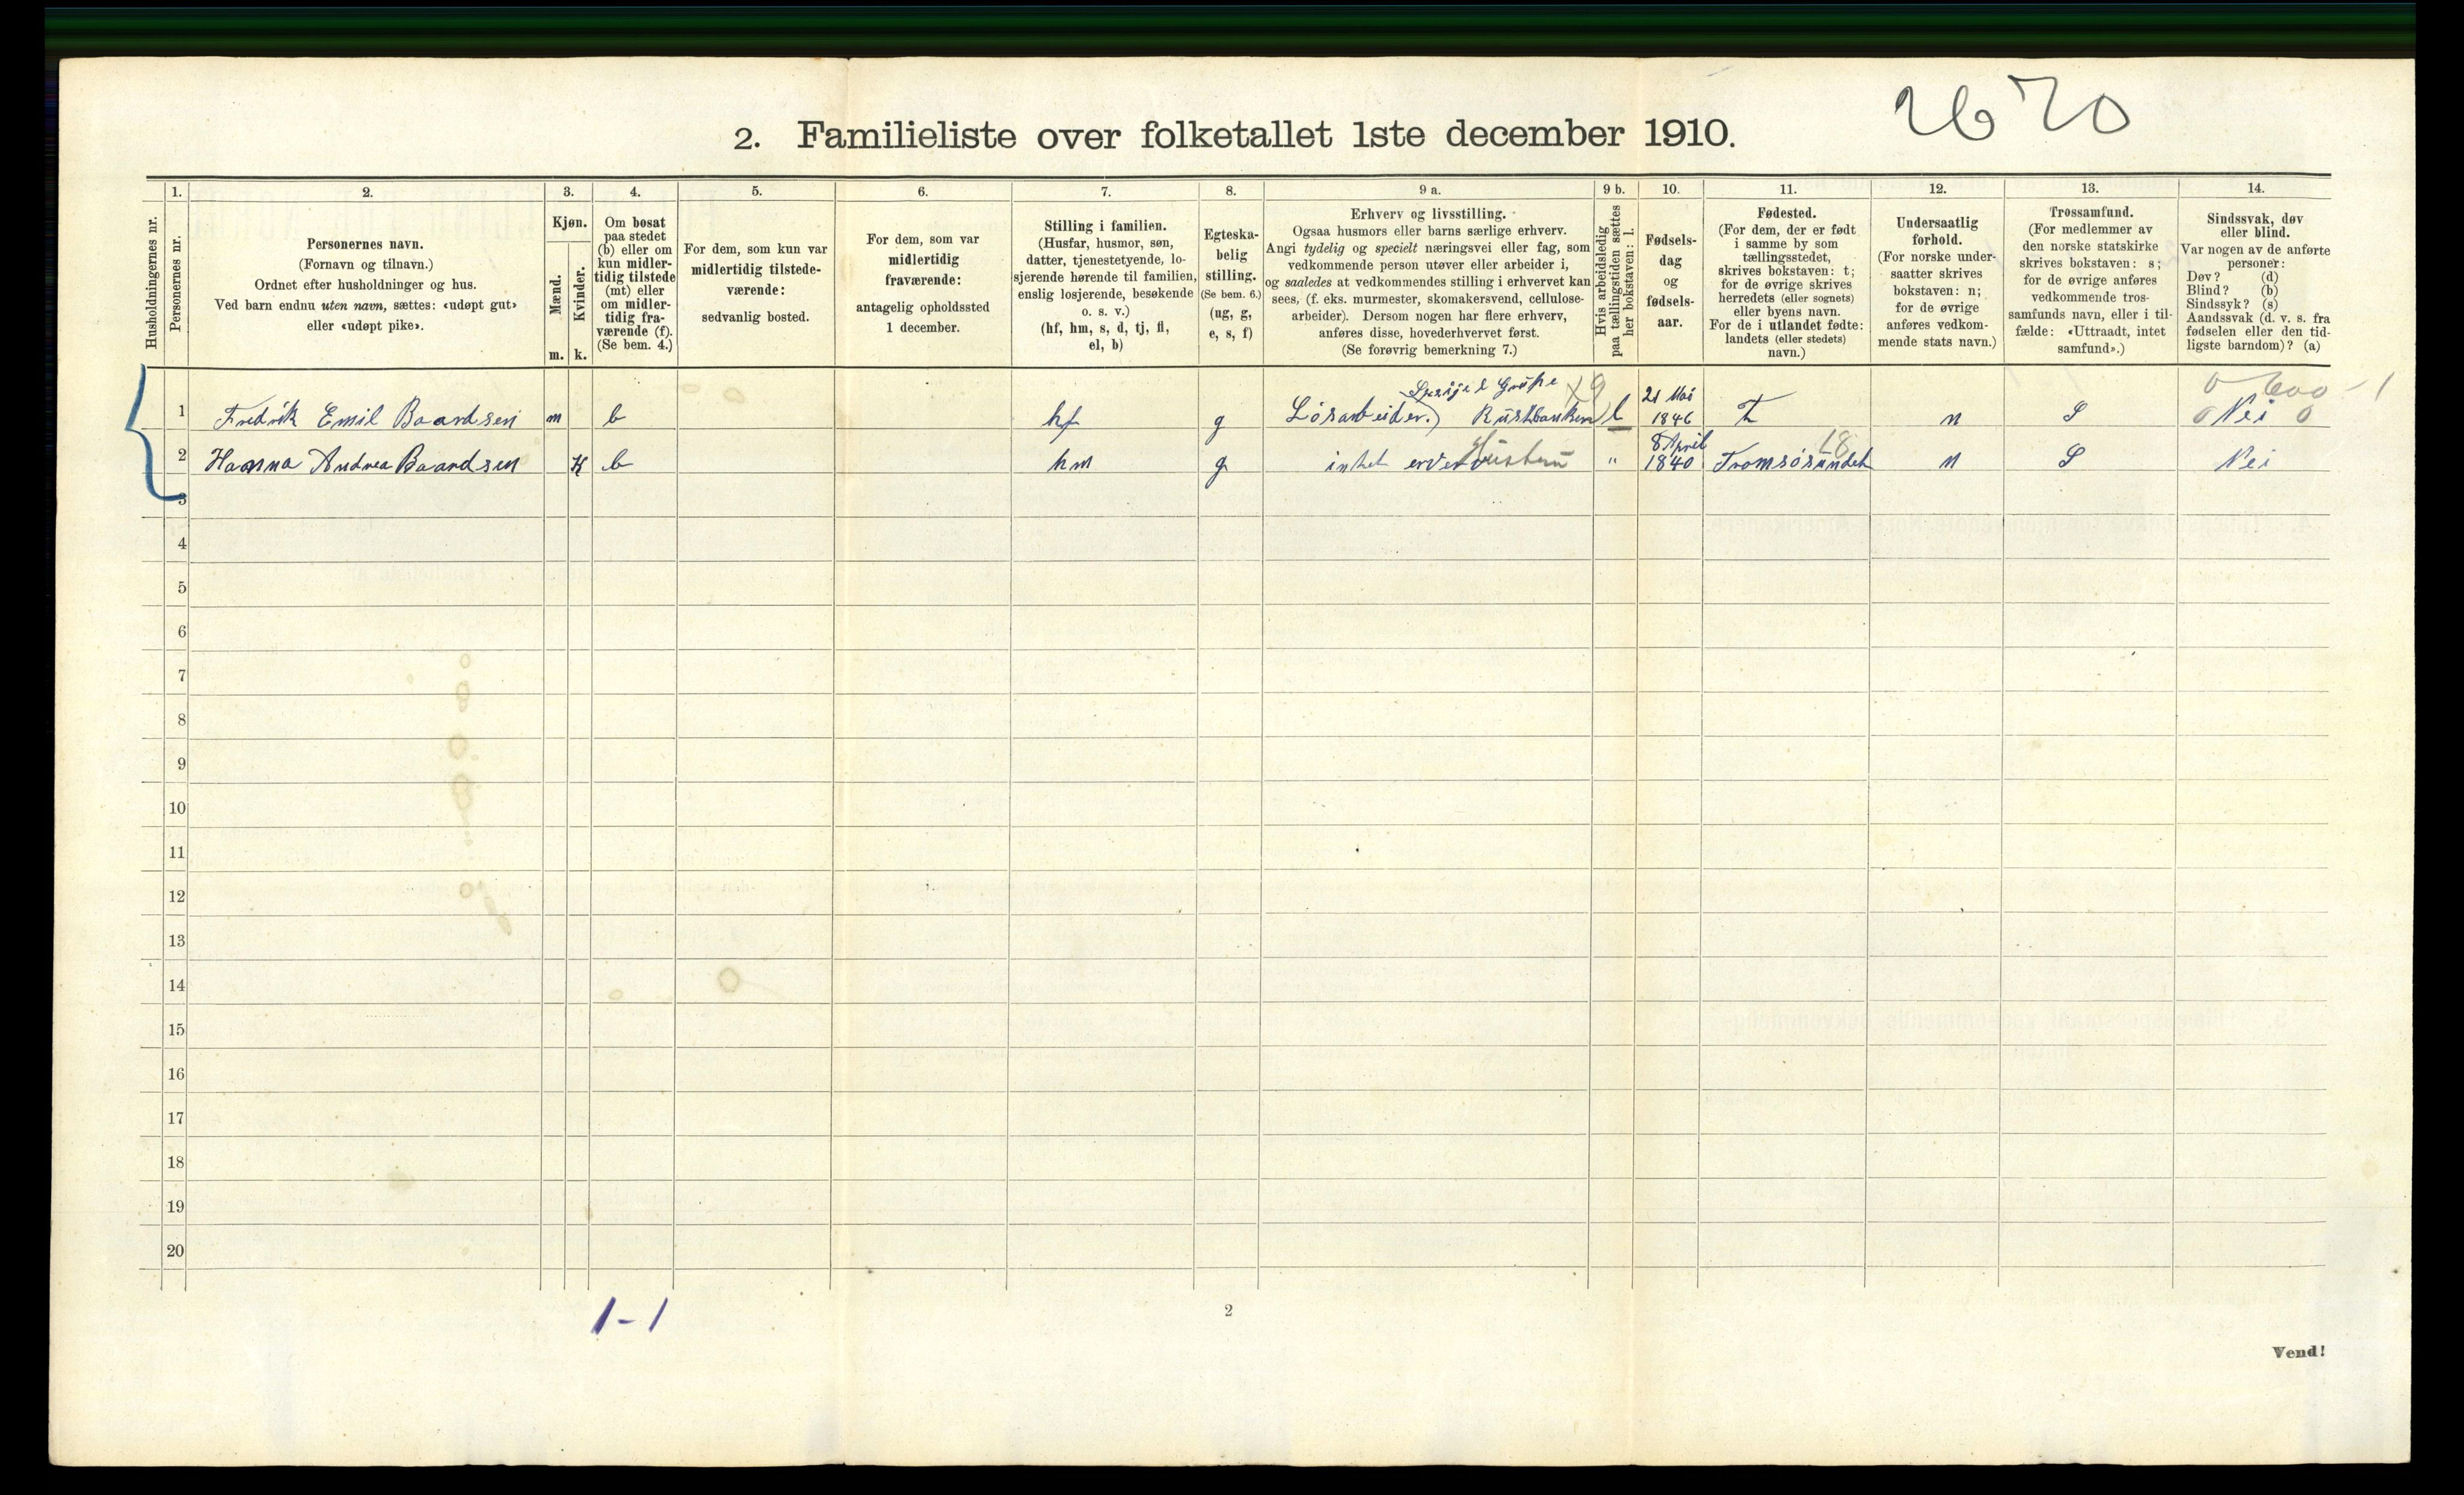 2670
2. Familieliste over folketallet 1ste december 1910.
Husholdningernes nr.
1.
Personernes nr.
2.
Personernes navn.
(Fornavn og tilnavn.)
Ordnet efter husholdninger og hus.
Ved barn endnu uten navn, sættes: «udøpt gut»
eller «udøpt pike».
3.
Kjøn.
Mænd.
Kvinder.
m. k.
4.
Om bosat
paa stedet
(b) eller om
kun midler-
tidig tilstede
(mt) eller
om midler-
tidig fra-
værende (f).
(Se bem. 4.)
5.
For dem, som kun var
midlertidig tilstede-
værende:
sedvanlig bosted.
6.
For dem, som var
midlertidig
fraværende:
antagelig opholdssted
1 december.
7.
Stilling i familien.
(Husfar, husmor, søn,
datter, tjenestetyende, lo-
sjerende hørende til familien,
enslig losjerende, besøkende
o. s. v.)
(hf, hm, s, d, tj, fl,
el, b)
8.
Egteska-
belig
stilling.
(Se bem. 6.)
(ug, g,
e, s, f)
9 a.
Erhverv og livsstilling.
Ogsaa husmors eller barns særlige erhverv.
Angi tydelig og specielt næringsvei eller fag, som
vedkommende person utøver eller arbeider i,
og saaledes at vedkommendes stilling i erhvervet kan
sees, (f. eks. murmester, skomakersvend, cellulose-
arbeider). Dersom nogen har flere erhverv,
anføres disse, hovederhvervet først.
(Se forøvrig bemerkning 7.)
9 b.
Hvis arbeidsledig
paa tællingstiden sættes
her bokstaven: l.
10.
Fødsels-
dag
og
fødsels-
aar.
11.
Fødested.
(For dem, der er født
i samme by som
tællingsstedet,
skrives bokstaven: t;
for de øvrige skrives
herredets (eller sognets)
eller byens navn.
For de i utlandet fødte:
landets (eller stedets)
navn.)
12.
Undersaatlig
forhold.
(For norske under-
saatter skrives
bokstaven: n;
for de øvrige
anføres vedkom-
mende stats navn.)
13.
Trossamfund.
(For medlemmer av
den norske statskirke
skrives bokstaven: s;
for de øvrige anføres
vedkommende tros-
samfunds navn, eller i til-
fælde: «Uttraadt, intet
samfund».)
14.
Sindssvak, døv
eller blind.
Var nogen av de anførte
personer:
Døv? (d)
Blind? (b)
Sindssyk? (s)
Aandssvak (d. v. s. fra
fødselen eller den tid-
ligste barndom)? (a)
0 600 - 1
1 Fredrik Emil Baardsen m b hf g Lösarbeider. l 21 Mai 1846 t n S 0 Nei 0
2 Hanna Andrea Baardsen K b hm g intet erverv Hustru " 8 April 1840 Tromsösundet 18 n S Nei
3
4
5
6
7
8
9
10
11
12
13
14
15
16
17
18
19
20
1-1
2
Vend!